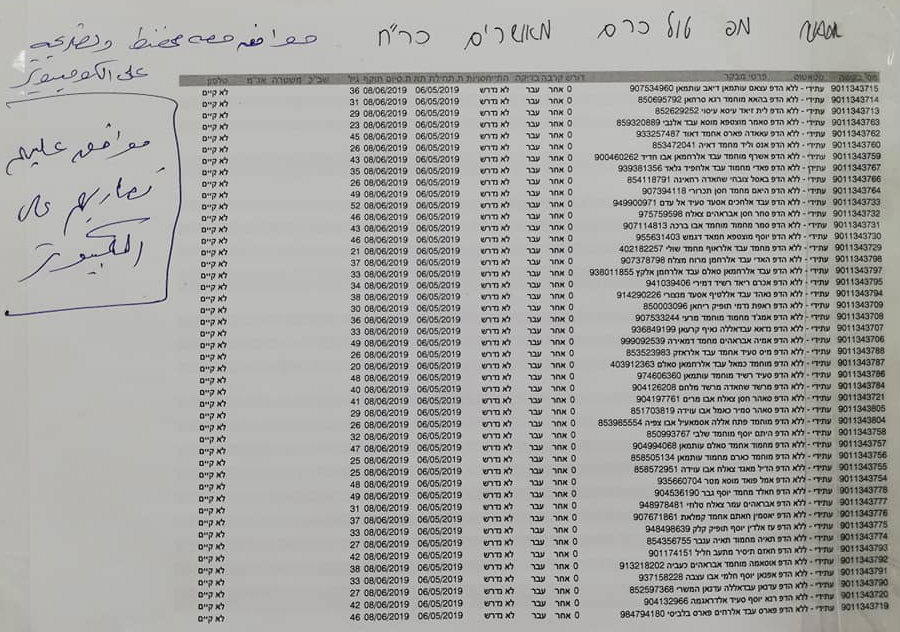 חוסאם מפ טול כרם מאושרים כר"ח موافقه
على الكومبيوتر
موافق عليهم
على
الكمبيوتر
מס' בקשה סטאטוס פרטי מבקר דורש קרבה בדיקה התייחסויות ת.תחילת תוק ת.סיום תוקף גיל שב"כ משטרה אג"מ טלפון
9011343715 עתידי - ללא הדפ עצאם עותמאן דיאב עותמאן 907534960 0 אחר עבר לא נדרש 06/05/2019 08/06/2019 36 לא קיים
9011343714 עתידי - ללא הדפ בהאא מוחמד רגא סרחאן 850695792 0 אחר עבר לא נדרש 06/05/2019 08/06/2019 31 לא קיים
9011343713 עתידי - ללא הדפ לית זיאד עיסא עיסוי 852629252 0 אחר עבר לא נדרש 06/05/2019 08/06/2019 29 לא קיים
9011343763 עתידי - ללא הדפ סאמר מוצטפא מוסא עבד אלנבי 859320889 0 אחר עבר לא נדרש 06/05/2019 08/06/2019 23 לא קיים
9011343762 עתידי - ללא הדפ עכאדה פארס אחמד דאוד 933257487 0 אחר עבר לא נדרש 06/05/2019 08/06/2019 45 לא קיים
9011343760 עתידי - ללא הדפ אנס וליד מחמד דאיה 853472041 0 אחר עבר לא נדרש 06/05/2019 08/06/2019 26 לא קיים
9011343759 עתידי - ללא הדפ אשרף מוחמד עבד אלרחמאן אבו חדיד 900460262 0 אחר עבר לא נדרש 06/05/2019 08/06/2019 43 לא קיים
9011343767 עתידי - ללא הדפ פאדי מחמוד עבד אלחפיד גלאד 939381356 0 אחר עבר לא נדרש 06/05/2019 08/06/2019 35 לא קיים
9011343766 עתידי - ללא הדפ באסל צובחי שחאדה רחאינה 854118791 0 אחר עבר לא נדרש 06/05/2019 08/06/2019 26 לא קיים
9011343764 עתידי - ללא הדפ היאם מחמד חסן תכרורי 907394118 0 אחר עבר לא נדרש 06/05/2019 08/06/2019 49 לא קיים
9011343733 עתידי - ללא הדפ עבד אלחכים אסעד סעיד אל עדם 949900971 0 אחר עבר לא נדרש 06/05/2019 08/06/2019 52 לא קיים
9011343732 עתידי - ללא הדפ סחר חסן אבראהים צאלח 975759598 0 אחר עבר לא נדרש 06/05/2019 08/06/2019 46 לא קיים
9011343731 עתידי - ללא הדפ סמר מחמוד מוחמד אבו ברכה 907114813 0 אחר עבר לא נדרש 06/05/2019 08/06/2019 43 לא קיים
9011343730 עתידי - ללא הדפ יוסף מוצטפא חמאד דגמש 955631403 0 אחר עבר לא נדרש 06/05/2019 08/06/2019 46 לא קיים
9011343729 עתידי - ללא הדפ מחמד עבד אלראוף מחמד שולי 402182257 0 אחר עבר לא נדרש 06/05/2019 08/06/2019 21 לא קיים
9011343798 עתידי - ללא הדפ האדי עבד אלרחמן מרוח מצלח 907378798 0 אחר עבר לא נדרש 06/05/2019 08/06/2019 37 לא קיים
9011343797 עתידי - ללא הדפ עבד אלרחמאן סאלם עבד אלרחמן אלקץ 938011855 0 אחר עבר לא נדרש 06/05/2019 08/06/2019 33 לא קיים
9011343795 עתידי - ללא הדפ אכרם ריאד רשיד דמירי 941039406 0 אחר עבר לא נדרש 06/05/2019 08/06/2019 34 לא קיים
9011343794 עתידי - ללא הדפ נאהד עבד אללטיף אסעד מנצורי 914290226 0 אחר עבר לא נדרש 06/05/2019 08/06/2019 38 לא קיים
9011343709 עתידי - ללא הדפ ראפת נדמי תופיק ריחאן 850003096 0 אחר עבר לא נדרש 06/05/2019 08/06/2019 30 לא קיים
9011343708 עתידי - ללא הדפ אמג'ד מחמד מוחמד מרעי 907533244 0 אחר עבר לא נדרש 06/05/2019 08/06/2019 36 לא קיים
9011343707 עתידי - ללא הדפ נדאא עבדאללה נאיף קרעאן 936849199 0 אחר עבר לא נדרש 06/05/2019 08/06/2019 33 לא קיים
9011343706 עתידי - ללא הדפ אמיה אבראהים מחמד דמאירה 999092539 0 אחר עבר לא נדרש 06/05/2019 08/06/2019 49 לא קיים
9011343788 עתידי - ללא הדפ מיס סעיד אחמד עבד אלראזק 853523983 0 אחר עבר לא נדרש 06/05/2019 08/06/2019 26 לא קיים
9011343787 עתידי - ללא הדפ מוחמד כמאל עבד אלרחמאן סאלם 403912363 0 אחר עבר לא נדרש 06/05/2019 08/06/2019 20 לא קיים
9011343786 עתידי - ללא הדפ סעיד רשיד מוחמד עותמאן 974606360 0 אחר עבר לא נדרש 06/05/2019 08/06/2019 48 לא קיים
9011343784 עתידי - ללא הדפ מרשד שחאדה מרשד מלחם 904126208 0 אחר עבר לא נדרש 06/05/2019 08/06/2019 40 לא קיים
9011343721 עתידי - ללא הדפ סאהר חסן צאלח אבו מרים 904197761 0 אחר עבר לא נדרש 06/05/2019 08/06/2019 41 לא קיים
9011343805 עתידי - ללא הדפ סאהר סמיר כאמל אבו עוידה 851703819 0 אחר עבר לא נדרש 06/05/2019 08/06/2019 29 לא קיים
9011343804 עתידי - ללא הדפ מוחמד פתח אללה אסמאעיל אבו צפיה 853985554 0 אחר עבר לא נדרש 06/05/2019 08/06/2019 26 לא קיים
9011343758 עתידי - ללא הדפ היתם יוסף מוחמד שלבי 850993767 0 אחר עבר לא נדרש 06/05/2019 08/06/2019 32 לא קיים
9011343757 עתידי - ללא הדפ מחמוד אחמד סאלם עותמאן 904994068 0 אחר עבר לא נדרש 06/05/2019 08/06/2019 47 לא קיים
9011343756 עתידי - ללא הדפ מוחמד כארם מחמד עותמאן 858505134 0 אחר עבר לא נדרש 06/05/2019 08/06/2019 25 לא קיים
9011343755 עתידי - ללא הדפ הדיל מאגד צאלח אבו עוידה 858572951 0 אחר עבר לא נדרש 06/05/2019 08/06/2019 25 לא קיים
9011343754 עתידי - ללא הדפ אמל פואד מוסא מטר 935660704 0 אחר עבר לא נדרש 06/05/2019 08/06/2019 48 לא קיים
9011343778 עתידי - ללא הדפ חאלד מחמד יוסף גבר 904536190 0 אחר עבר לא נדרש 06/05/2019 08/06/2019 49 לא קיים
9011343777 עתידי - ללא הדפ אבראהים עמר צאלח סלחי 948978481 0 אחר עבר לא נדרש 06/05/2019 08/06/2019 31 לא קיים
9011343776 עתידי - ללא הדפ יאסמין חאתם אחמד קמלאת 907671861 0 אחר עבר לא נדרש 06/05/2019 08/06/2019 37 לא קיים
9011343775 עתידי - ללא הדפ עז אלדין יוסף תופיק קלק 948498639 0 אחר עבר לא נדרש 06/05/2019 08/06/2019 33 לא קיים
9011343774 עתידי - ללא הדפ תאיה מחמוד תאיה ענבר 854356755 0 אחר עבר לא נדרש 06/05/2019 08/06/2019 27 לא קיים
9011343793 עתידי - ללא הדפ חאזם תיסיר מתעב חליל 901174151 0 אחר עבר לא נדרש 06/05/2019 08/06/2019 42 לא קיים
9011343792 עתידי - ללא הדפ אוסאמה מוחמד אבראהים כעביה 913218202 0 אחר עבר לא נדרש 06/05/2019 08/06/2019 38 לא קיים
9011343791 עתידי - ללא הדפ אפנאן יוסף חלמי אבו עצבה 937158228 0 אחר עבר לא נדרש 06/05/2019 08/06/2019 33 לא קיים
9011343790 עתידי - ללא הדפ עדנאן עבדאללה עדנאן המשרי 852597368 0 אחר עבר לא נדרש 06/05/2019 08/06/2019 27 לא קיים
9011343720 עתידי - ללא הדפ רנא יוסף סעיד אלדראגמה 904132966 0 אחר עבר לא נדרש 06/05/2019 08/06/2019 42 לא קיים
9011343719 עתידי - ללא הדפ פארס עבד אלרחים פארס בלביסי 984794180 0 אחר עבר לא נדרש 06/05/2019 08/06/2019 46 לא קיים